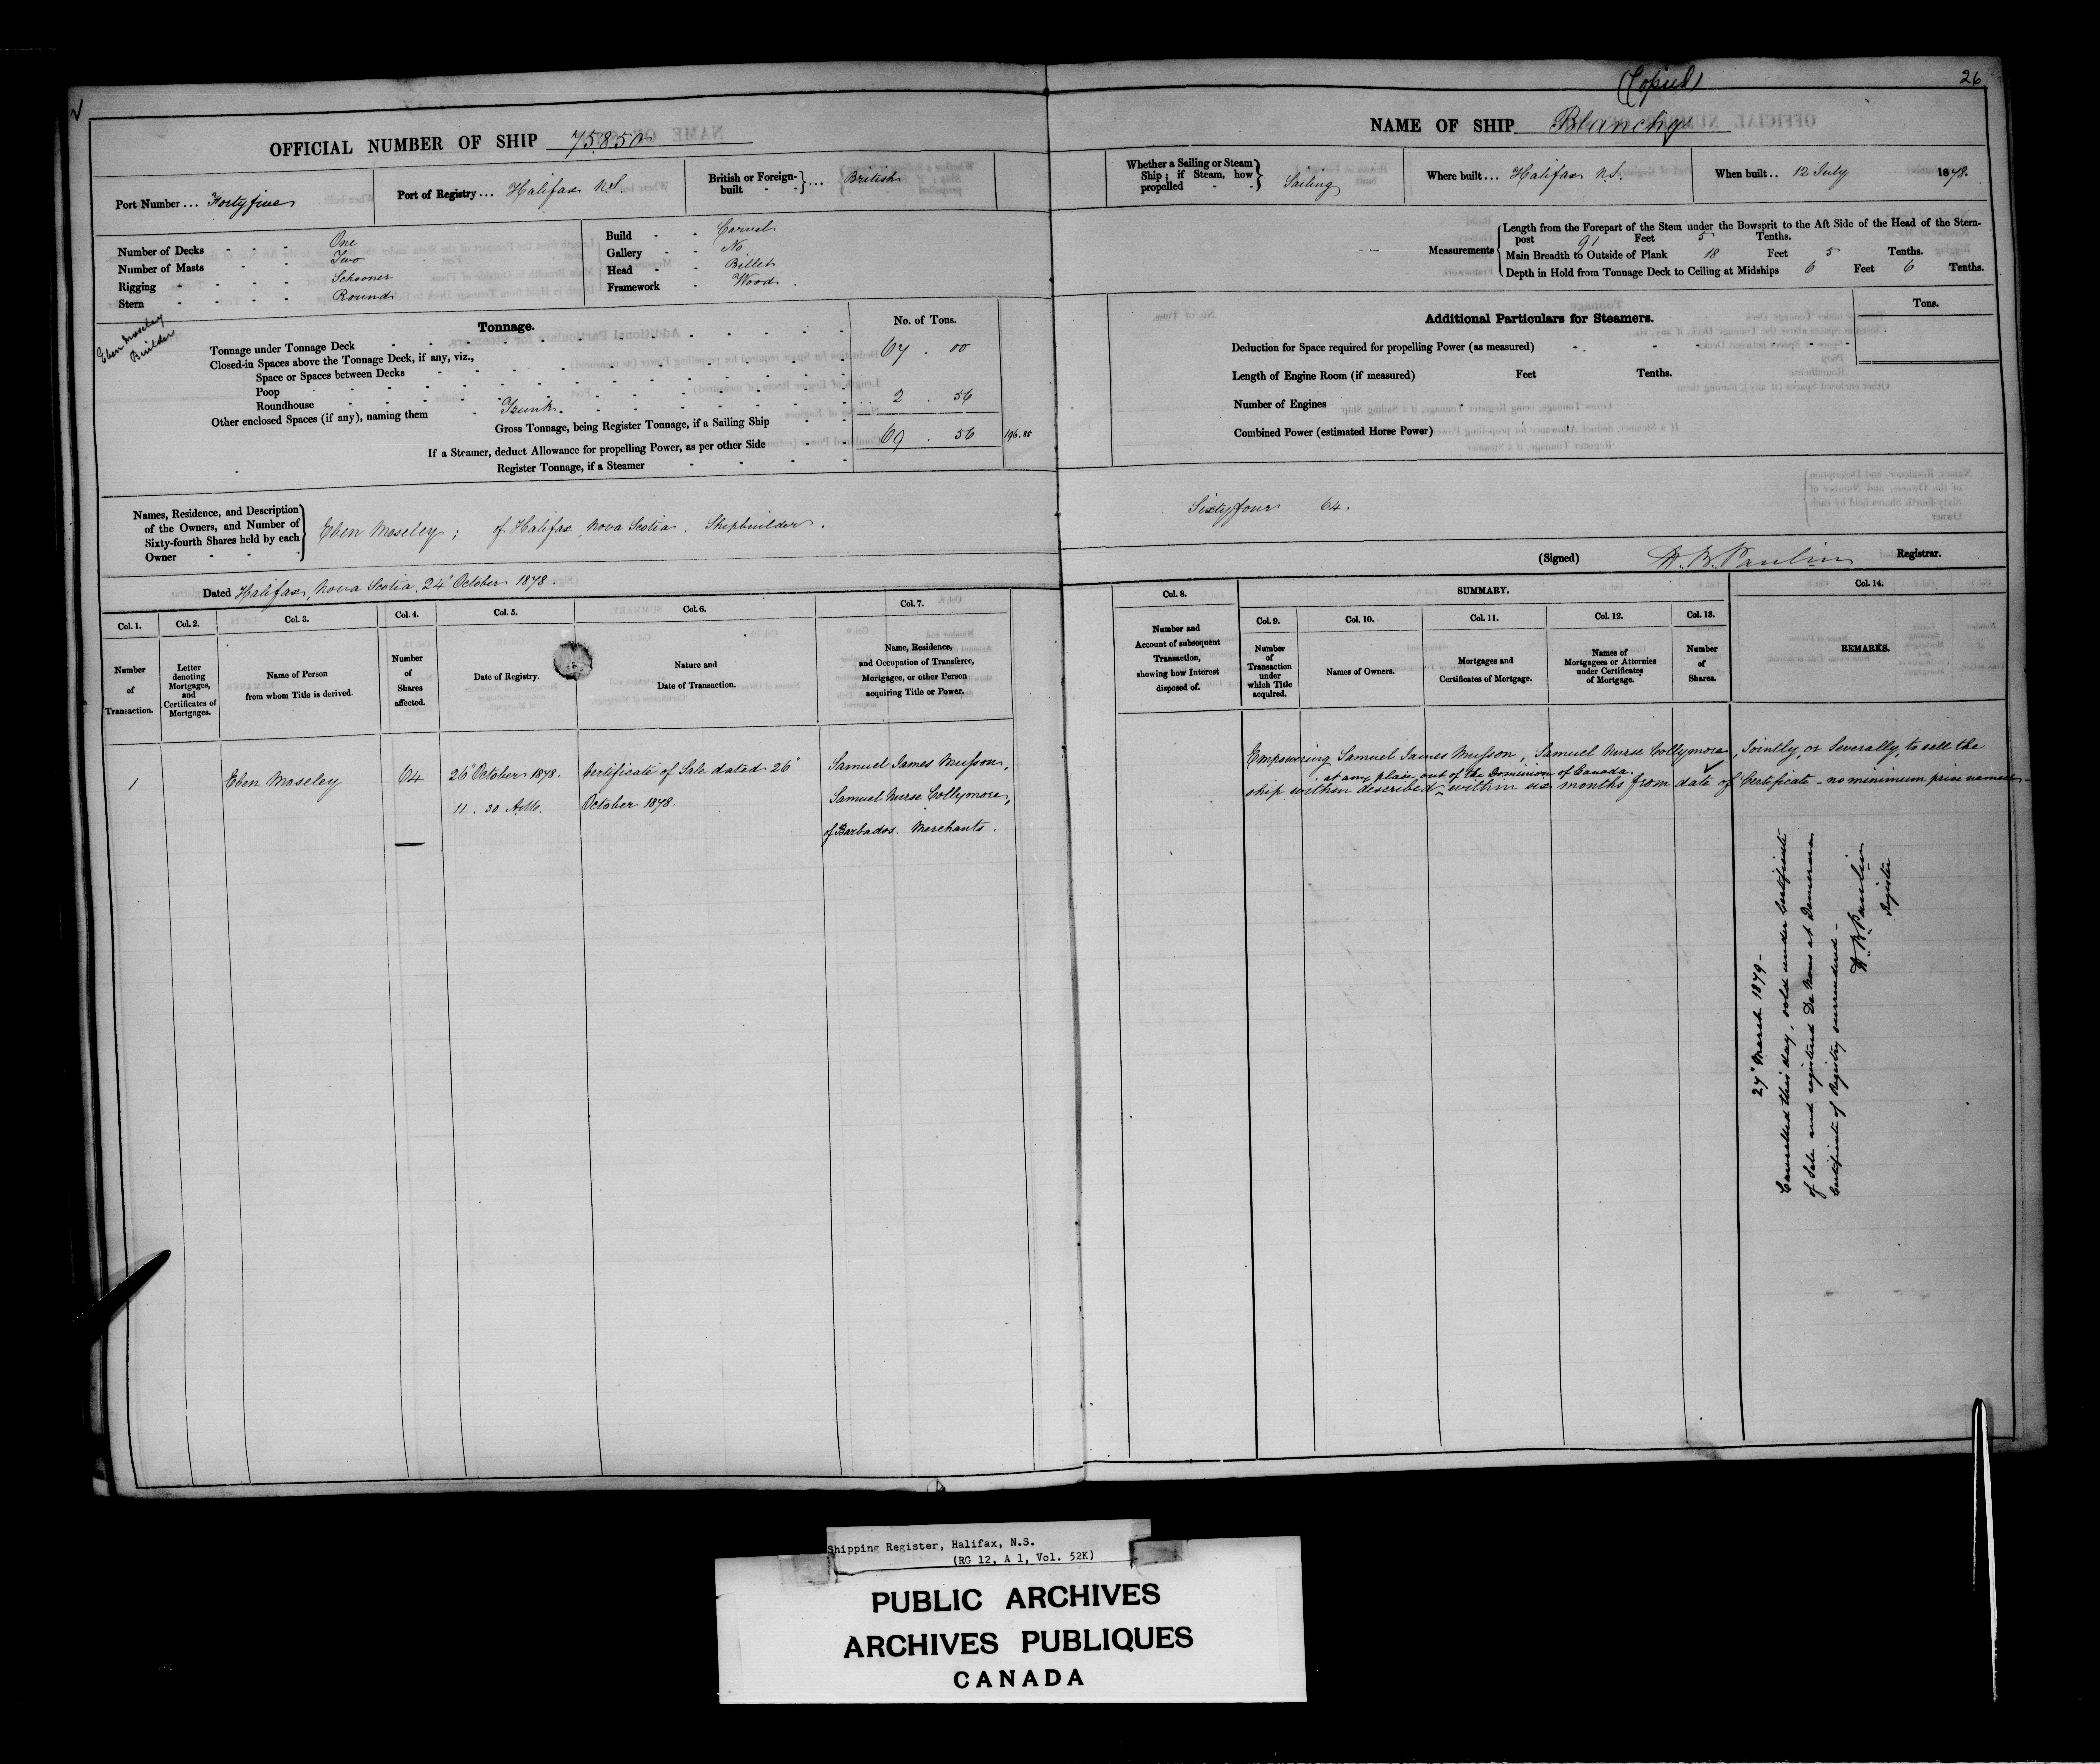 (Copied)
26
OFFICIAL NUMBER OF SHIP 75.850
NAME OF SHIP Blanche
Port Number ... Fortyfive
Port of Registry ... Halifax N.S.
British or Foreign-built - - } ... British
Whether a Sailing or Steam Ship; if Steam, how propelled - - } Sailing
Where built ... Halifax N.S.
When built .. 12 July 1878.
Number of Decks - - - One
Number of Masts - - - Two
Rigging - - - - Schooner
Stern - - - - Round
Build - - Carvel
Gallery - - No
Head - - Billet
Framework - Wood.
Measurements
Length from the Forepart of the Stem under the Bowsprit to the Aft Side of the Head of the Stern-
post 91 Feet 5 Tenths.
Main Breadth to Outside of Plank 18 Feet 5 Tenths.
Depth in Hold from Tonnage Deck to Ceiling at Midships 6 Feet 6 Tenths.
Eben Moseley
Builder
Tonnage.
No. of Tons.
Tonnage under Tonnage Deck 67 . 00
Closed-in Spaces above the Tonnage Deck, if any, viz.,
Space or Spaces between Decks
Poop
Roundhouse
Other enclosed Spaces (if any), naming them - Trunk. 2 . 56
Gross Tonnage, being Register Tonnage, if a Sailing Ship 69 . 56 196.85
If a Steamer, deduct Allowance for propelling Power, as per other Side
Register Tonnage, if a Steamer
Additional Particulars for Steamers.
Tons.
Deduction for Space required for propelling Power (as measured)
Length of Engine Room (if measured) Feet Tenths.
Number of Engines
Combined Power (estimated Horse Power)
Names, Residence, and Description
of the Owners, and Number of
Sixty-fourth Shares held by each
Owner - - -
Eben Moseley ; of Halifax, Nova Scotia. Shipbuilder.
Sixtyfour 64.
Dated Halifax, Nova Scotia, 24" October 1878.
(Signed) H. W. Paulin Registrar.
Col. 1.
Number
of
Transaction.
Col. 2.
Letter
denoting
Mortgages,
and
Certificates of
Mortgages.
Col. 3.
Name of Person
from whom Title is derived.
Col. 4.
Number
of
Shares
affected.
Col. 5.
Date of Registry.
Col. 6.
Nature and
Date of Transaction.
Col. 7.
Name, Residence,
and Occupation of Transferee,
Mortgagee, or other Person
acquiring Title or Power.
Col. 8.
Number and
Account of subsequent
Transaction,
showing how Interest
disposed of.
SUMMARY.
Col. 9.
Number
of
Transaction
under
which Title
acquired.
Col. 10.
Names of Owners.
Col. 11.
Mortgages and
Certificates of Mortgage.
Col. 12.
Names of
Mortgagees or Attornies
under Certificates
of Mortgage.
Col. 13.
Number
of
Shares.
Col. 14.
REMARKS.
1
Eben Moseley
64
26" October 1878.
11 . 30 A.M.
Certificate of Sale dated 26"
October 1878.
Samuel James Musson,
Samuel Nurse Collymore,
of Barbados. Merchants.
Empowering Samuel James Musson, Samuel Nurse Collymore, Jointly or Severally, to sell the
at any place out of the Dominion of Canada.
ship within described ^ within six months from date of Certificate - no minimum price named -
27" March 1879 -
Cancelled this day, sold under Certificate
of Sale and registered De Novo at Demerara
Certificate of Registry surrendered -
H. W. Paulin
Register
Shipping Register, Halifax, N.S.
(RG 12, A 1, Vol. 52K)
PUBLIC ARCHIVES
ARCHIVES PUBLIQUES
CANADA